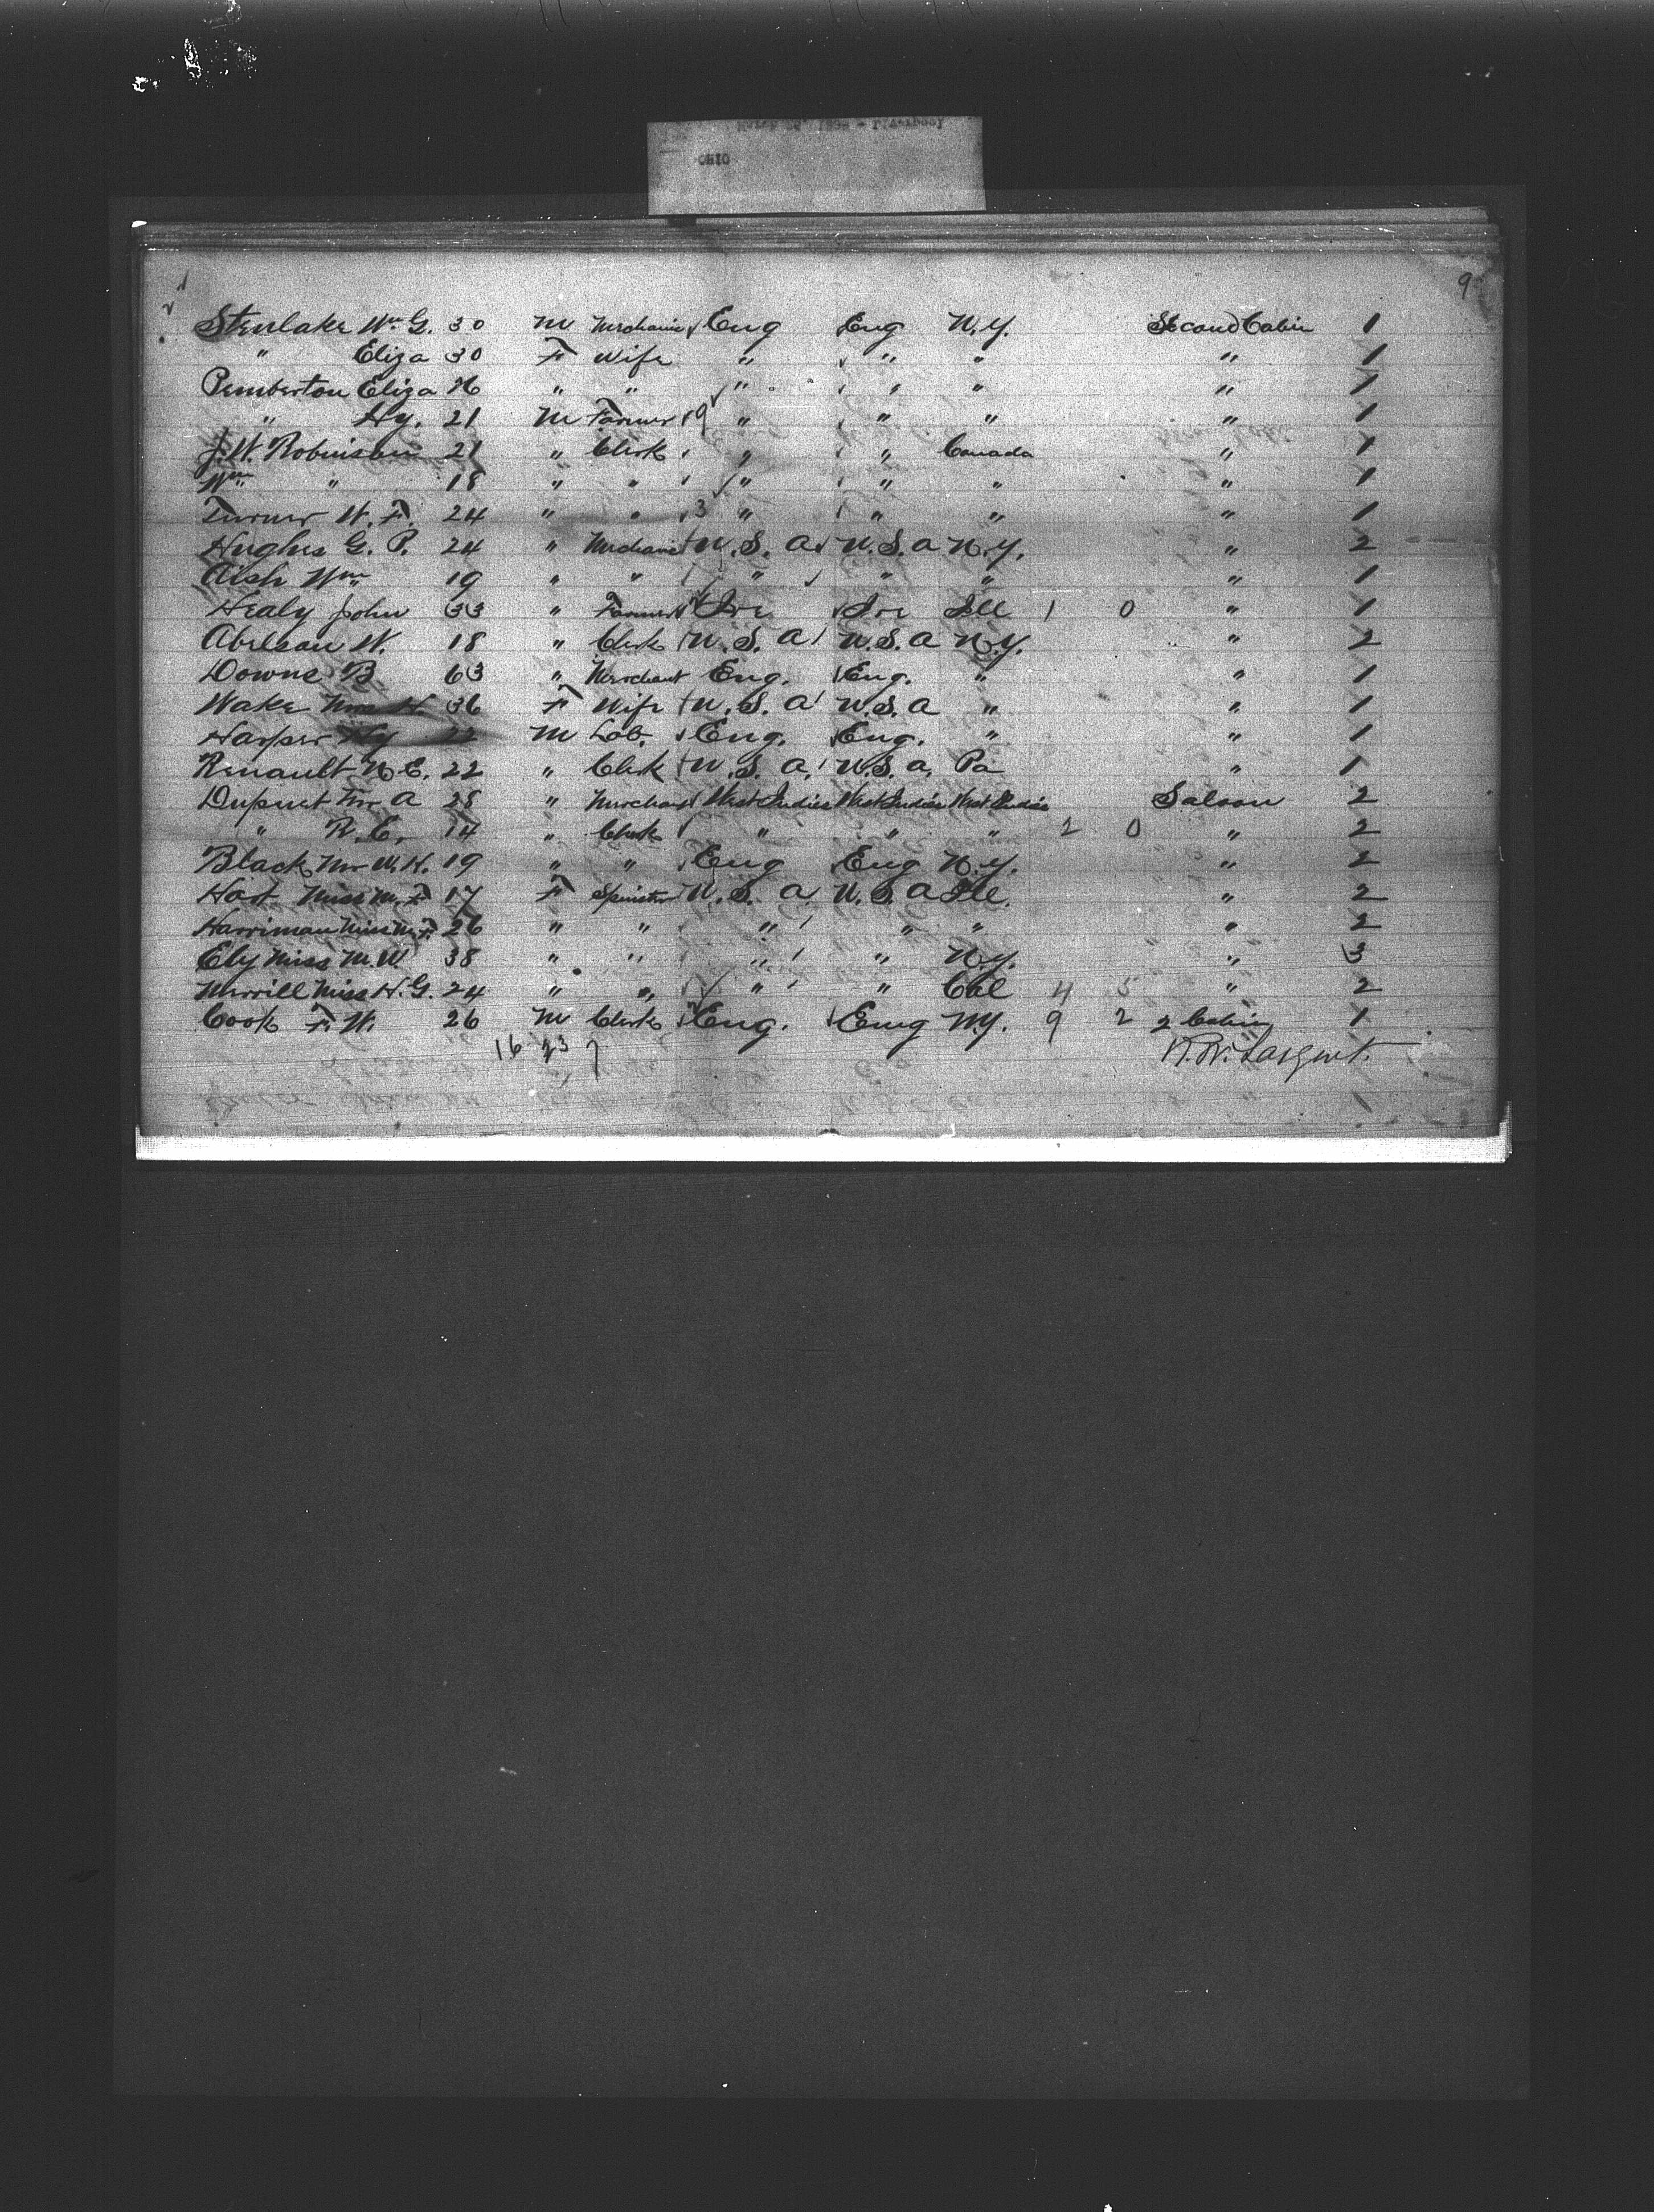 OHIO
9
Stenlake Wm G. 30 M Mechanic Eng Eng N.Y. Second Cabin 1
" Eliza 30 F Wife " " " " 1
Pemberton Eliza 26 " " " " " " 1
" Hy. 21 M Farmer 9 " " " " 1
J. W. Robinson 21 " Clerk " " Canada " 1
Wm " 18 " " " " " " 1
Turner W. F. 24 " " 3 " " " " 1
Hughes G. P. 24 " Mechanic U.S.A U.S.A N.Y. " 2
Aish Wm 19 " " " " " " 1
Healy John 33 " Farmer Ire Ire Ill 1 0 " 1
Abelson W. 18 " Clerk U.S.A U.S.A N.Y. " 2
Downs B 63 " Merchant Eng. Eng. " " 1
Wake Mrs H. 36 F Wife U.S.A U.S.A " " 1
Harper Hy 22 M Lab. Eng. Eng. " " 1
Renault N. E. 22 " Clerk U.S.A. U.S.A. Pa " 1
Dupuet Mr A 28 " Merchant West Indies West Indies West Indies Saloon 2
" R. C. 14 " Clerk " " " 2 0 " 2
Black Mr W. H. 19 " " Eng Eng N.Y. " 2
Hart Miss M. F 17 F Spinster U.S.A U.S.A Ill. " 2
Harriman Miss M. F. 26 " " " " " " 2
Ely Miss M. W 38 " " " " N.Y. " 3
Merrill Miss H. G. 24 " " " " Cal 4 5 " 2
Cook F. W. 26 M Clerk Eng. Eng N.Y. 9 2 2 Cabin 1
16 23 7